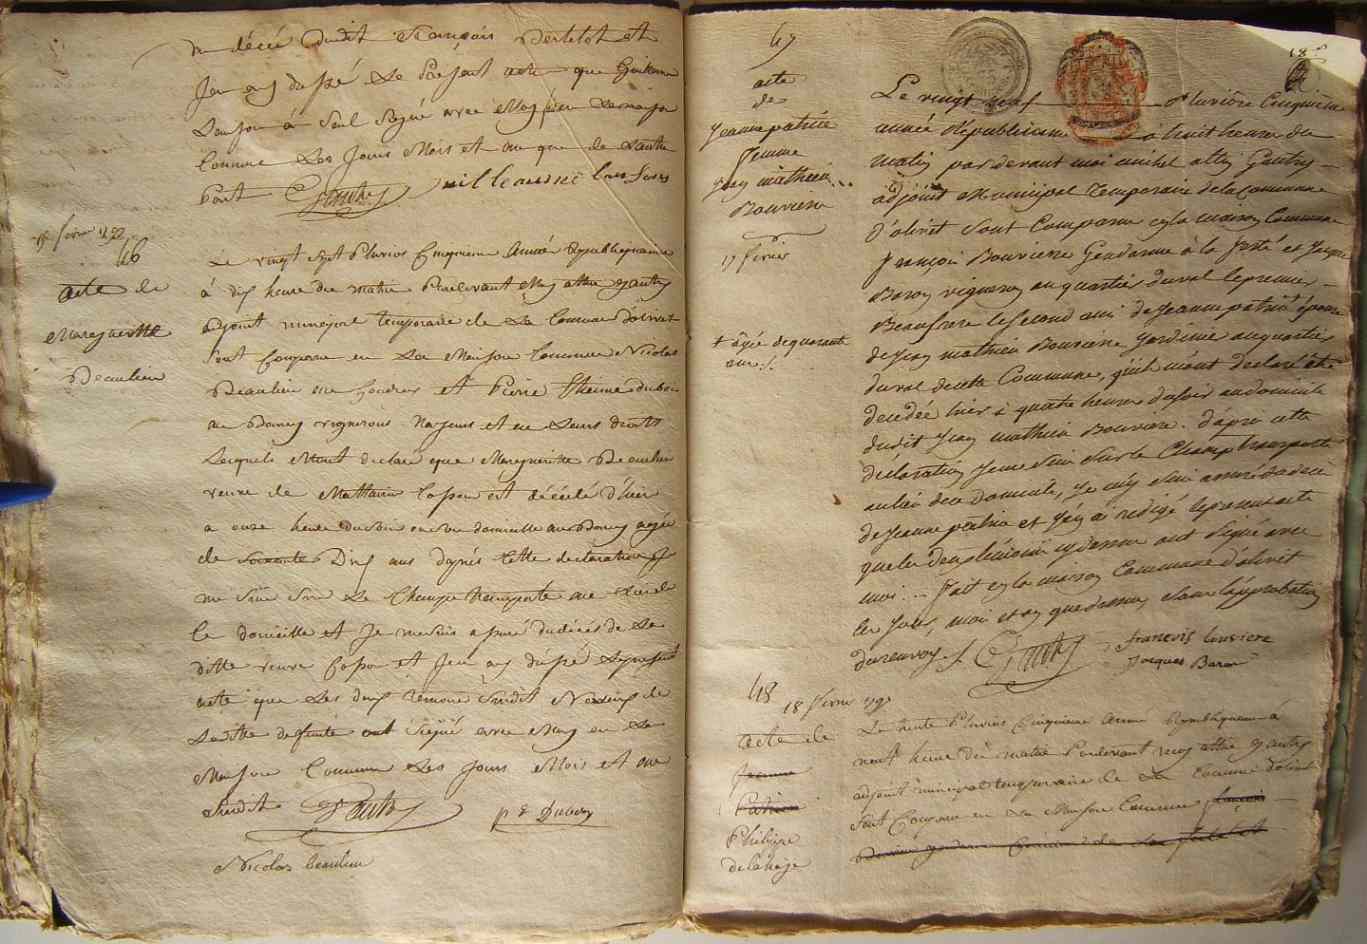 du décée dudit François Berthelot et
J'en ay dressé Le present acte que Guillaume
Lanson à seul signé avec Moy en La maison
Commune Les Jours Mois et an que de L'autre
Part Gautry guilleaume lanson
15 fevrier 1797
46
acte de
Margueritte
Beaulieu
Le vingt sept Pluvios Cinquieme Année Republiquaine
à dix heure du matin Pardevant Moy altin Gautry
adjoint municipal temporaire de La Comune dolivet
sont Comparu en La Maison Commune Nicolas
Beaulieu et Pierre Etienne dubois
au Bourg vignerons Majeurs et de Leurs droits
Lesquels M'ont declaré que Margueritte Beaulieu
veuve de Mathurin Coson est décédé d'hier
a onze heure du soir en son domicille au Bourg agée
de soixante Dix ans d'après Cette declaration je
me suis sur Le Champ transporté au Lieu de
Ce domicille et Je me suis assuré du décès de La
ditte veuve Coson et J'en ay dressé Le present
acte que Les deux temoins susdit de
Laditte deffunte ont signé avec Moy en La
Maison Commune Les Jours Mois et an
susdit Gautry P E Dubois
Nicolas beaulieu
47
acte
de
Jeanne patrice
femme
jean mathieu
Bouviere
17 février
+ âgée de quarante
ans ./.
Le vingt neuf Pluviôse Cinquieme
année Républicaine à huit heures du
matin par devant moi michel altin Gautry
adjoint Municipal Temporaire de la Commune
d'olivet sont Comparus en la maison Commune
françois Bouviere Gendarme à la ferté et Jacques
Baron vigneron au quartier du val le premier
Beaufrere le second ami de Jeanne patrice + épouse
de Jean mathieu Bouviere Jardinier au quartier
du val de cette Commune, qu'ils m'ont declaré être
decedée hier à quatre heures du soir au domicile
dudit Jean mathieu Bouviere. d'après cette
déclaration je me suis sur le Champ transporté
au lieu de ce domicile, je m'y suis assuré du décès
de Jeanne patrice et j'en ai redigé le present acte
que les deux témoins cy dessus ont signé avec
moi ... fait en la maison Commune d'olivet
les jour, mois et an que dessus, sous l'approbation
du renvoy ./. Gautry françois bouviere
Jacques Baron
48
18 fevrier 1797
acte de
Jeanne
Patrice
Philippe
delahaije
Le trente Pluvios Cinquieme Année Republiquaine à
neuf heure du matin Pardevant moy altin Gautry
adjoint municipal temporaire de La Comune dolivet
sont Comparu en La Maison Commune françois
Bouviere gendarme de La ferté et